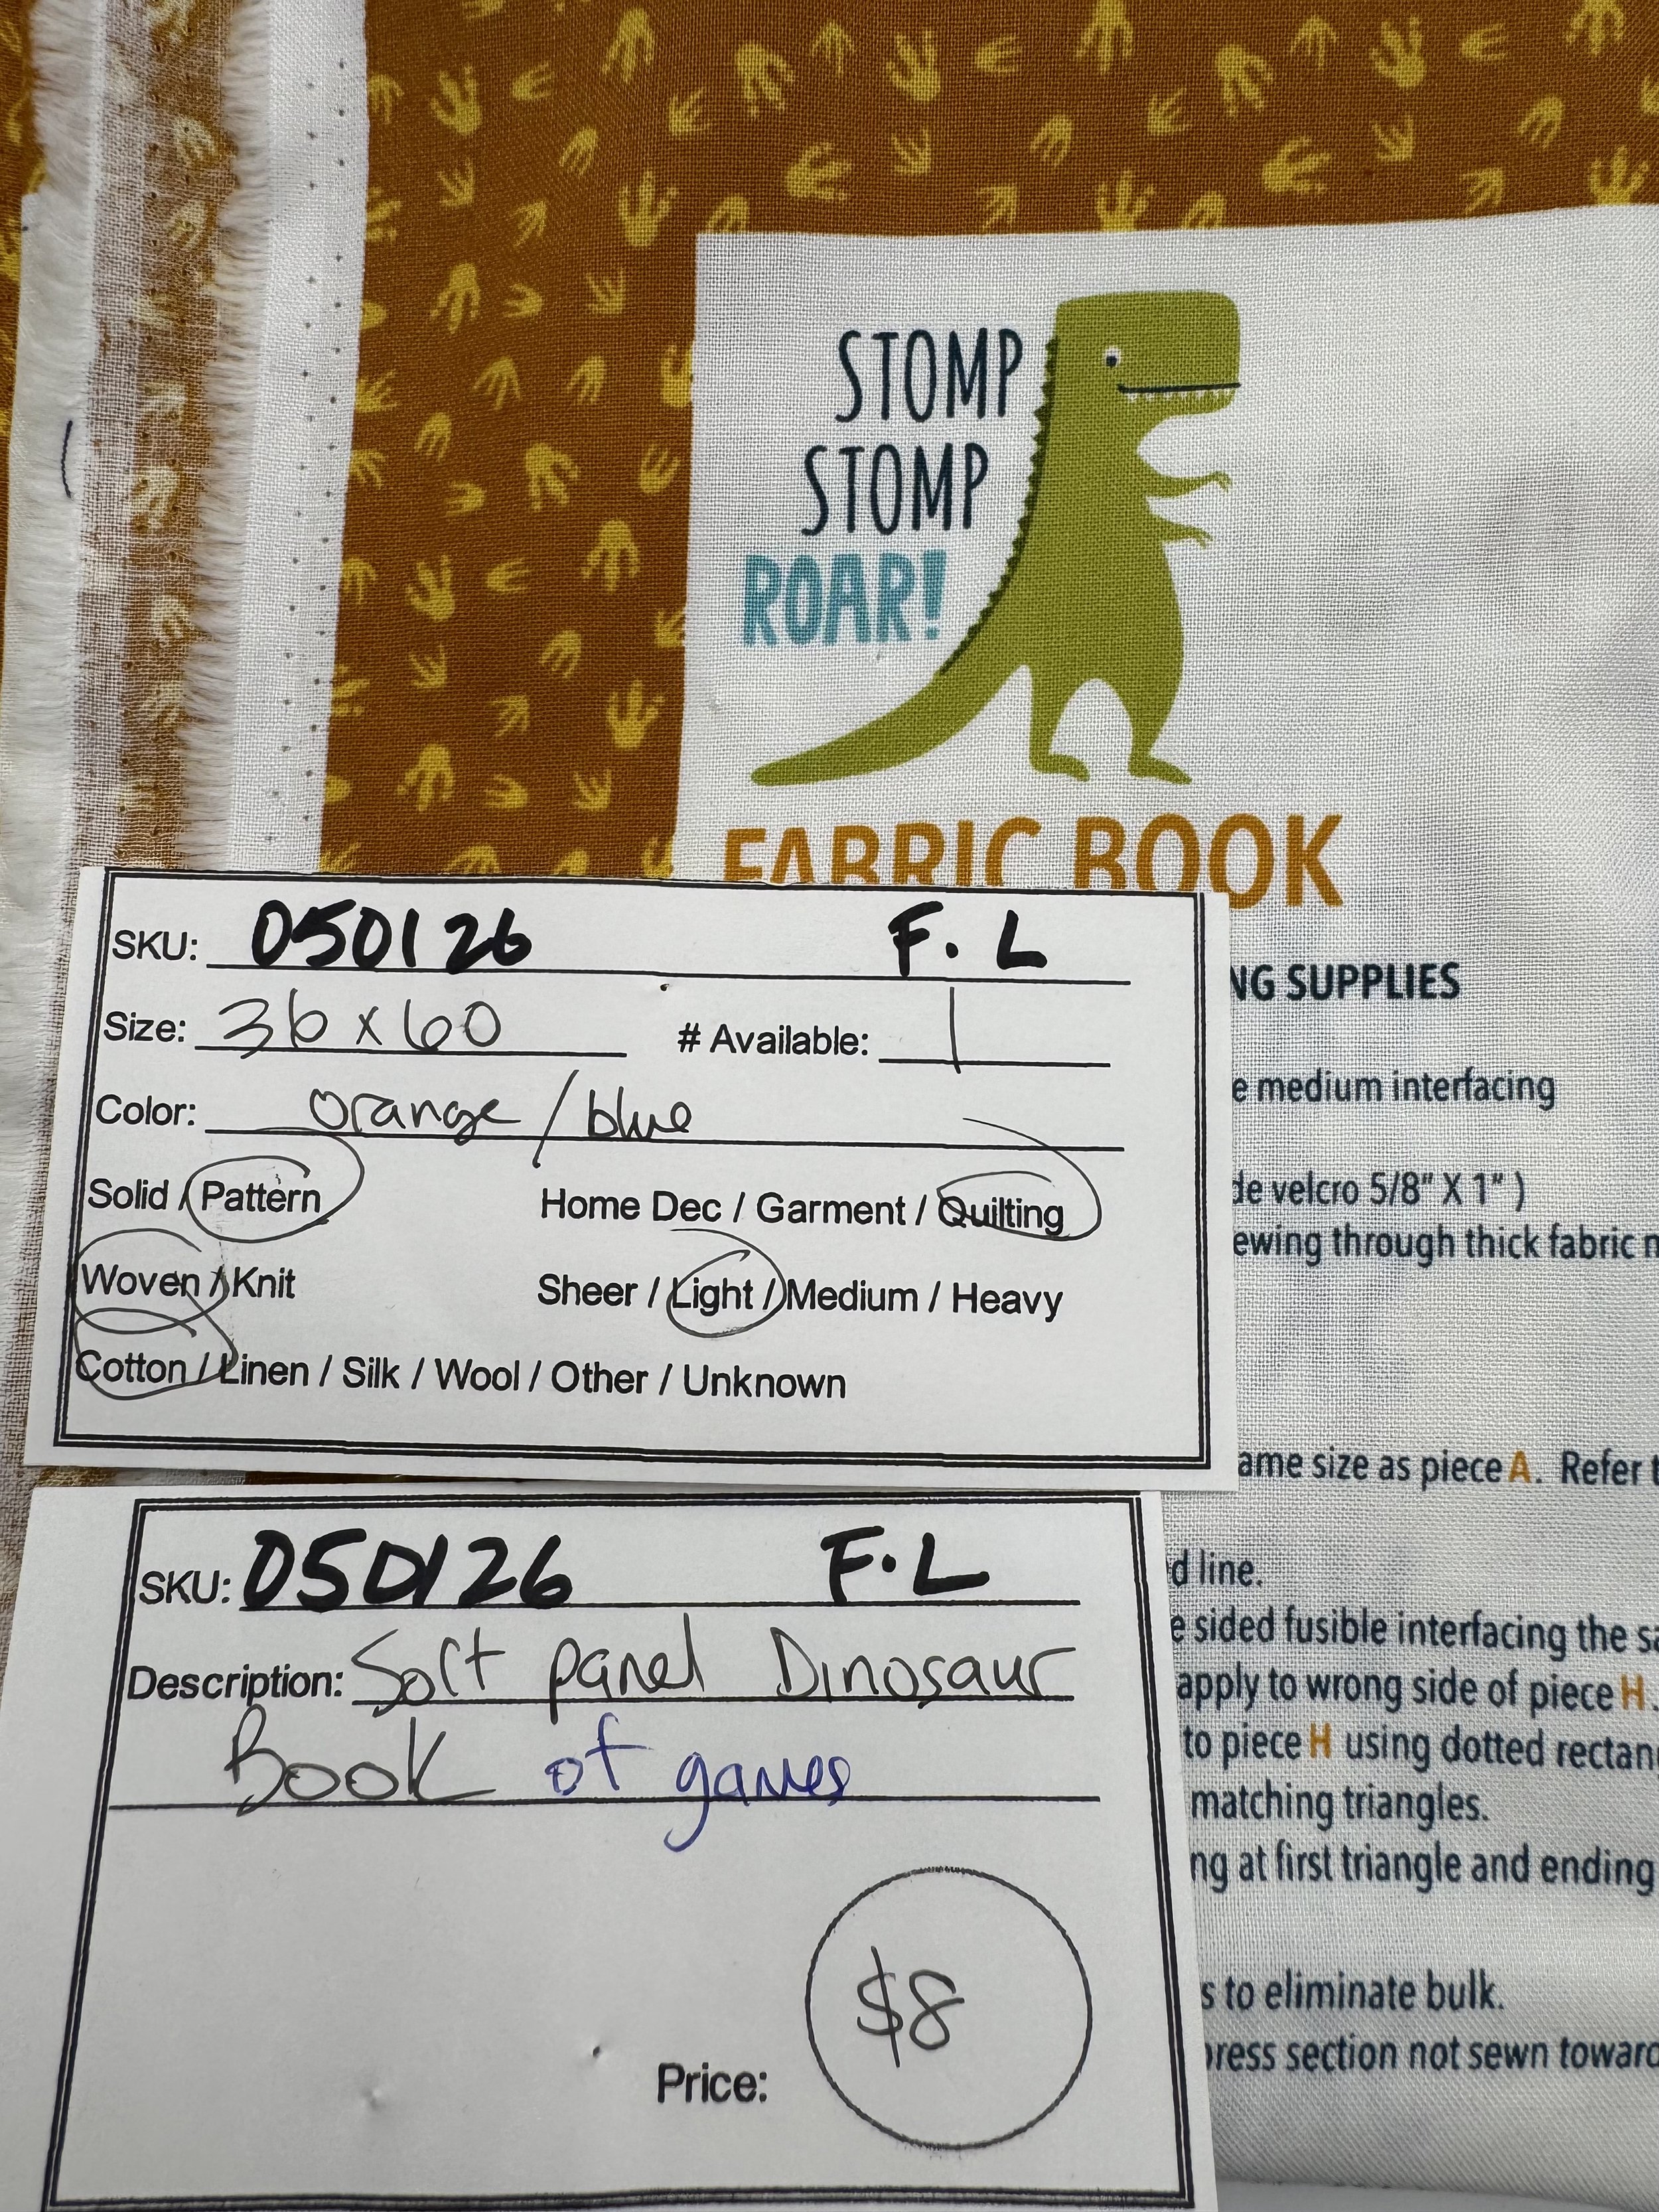 STOMP
STOMP
ROAR!
FABRIC BOOK
SKU: 050126 F. L
Size: 36 x 60 # Available: 1
Color: orange / blue
Solid / Pattern Home Dec / Garment / Quilting
Woven / Knit Sheer / Light / Medium / Heavy
Cotton / Linen / Silk / Wool / Other / Unknown
NG SUPPLIES
e medium interfacing
de velcro 5/8" X 1" )
ewing through thick fabric
ame size as piece A. Refer
d line.
e sided fusible interfacing the
apply to wrong side of piece H.
to piece H using dotted
matching triangles.
ng at first triangle and ending
s to eliminate bulk.
press section not sewn
SKU: 050126 F.L
Description: Soft panel Dinosaur
Book of games
Price: $8